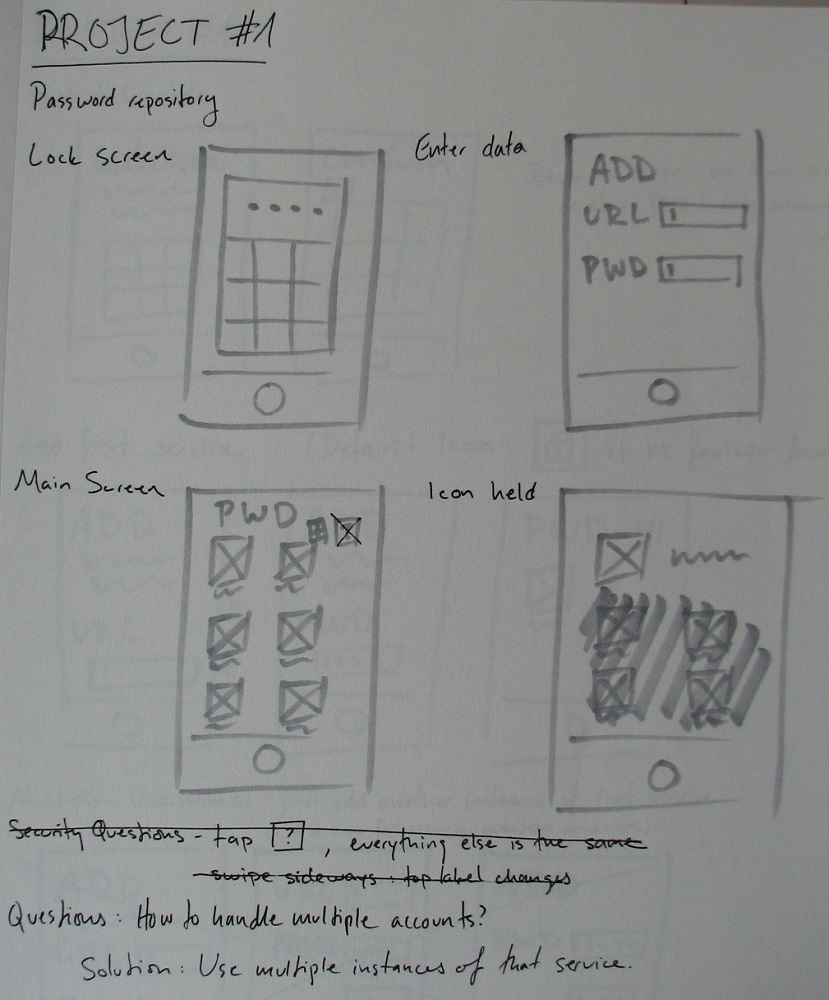 PROJECT #1
Password repository
Lock screen
Enter data
ADD
URL
PWD
Main Screen
PWD
Icon held
Security Questions - tap [?], everything else is the same
- swipe sideways : top label changes
Questions: How to handle multiple accounts?
Solution: Use multiple instances of that service.